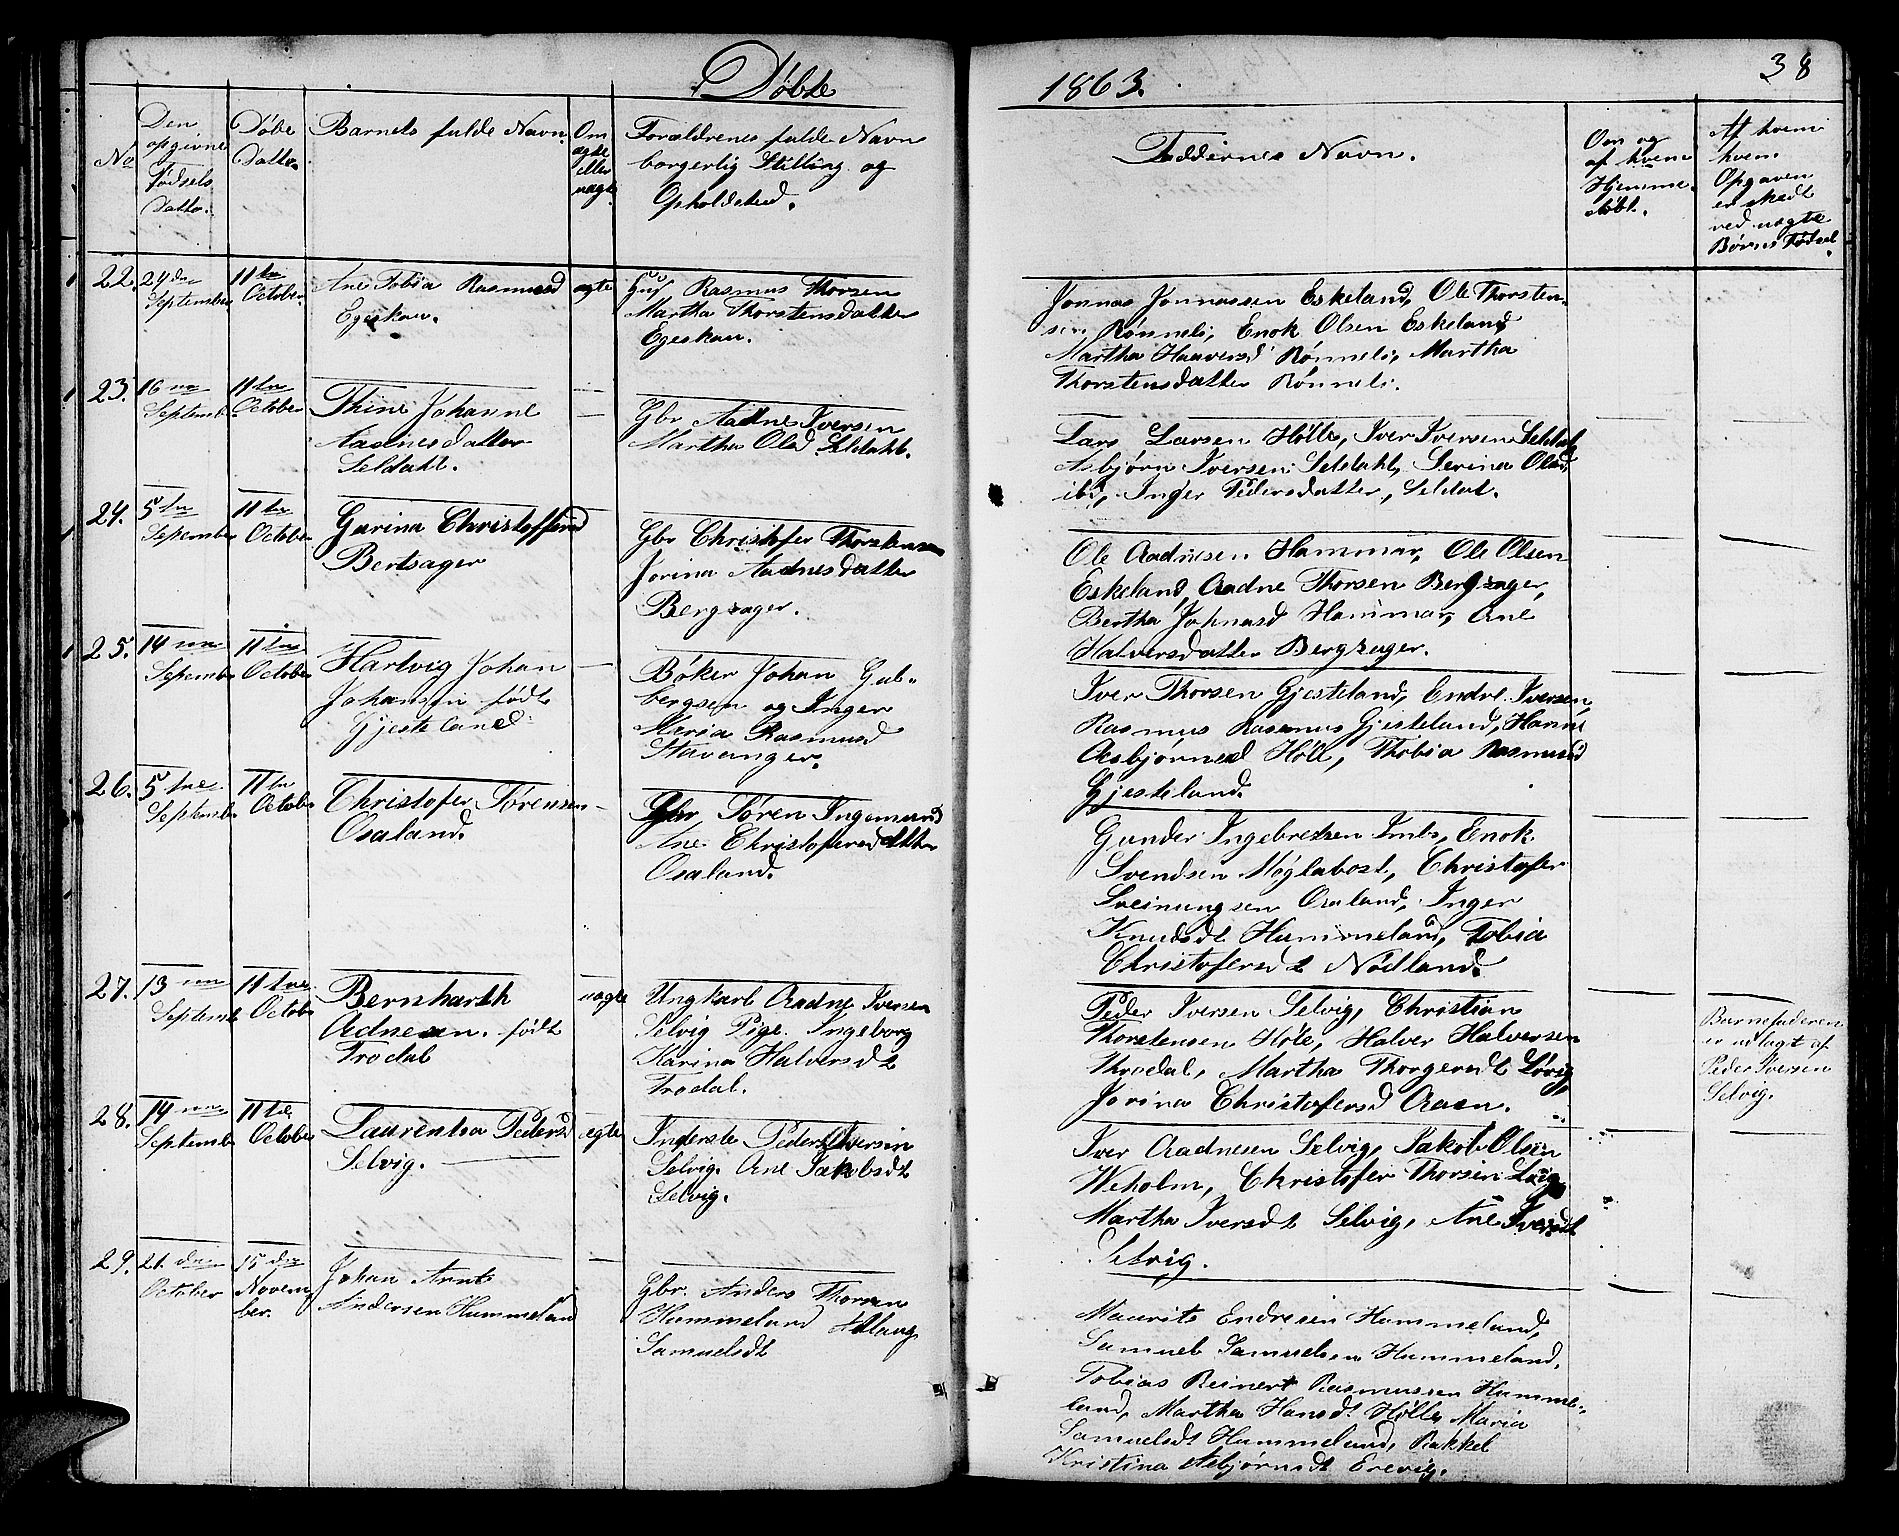 Døbte
1863.
38
No
Den opgivne Fødsels Datto.
Døbe Datto.
Barnets fulde Navn.
Om ægte eller uægte
Forældrenes fulde Navn
borgerlig Stilling og
Opholdsted.
Faddernes Navn.
Om og
af hvem
Hjemme-
døbt.
Af hvem
hvem
Opgaven
er skedt
ved uægte
Børns Fødsel.
22.
24de
September
11te
October
Ane Tobia Rasmusd
Egeskau.
ægte
Huf Rasmus Thorsen
Martha Thorstensdatter
Egeskau.
Jonnas Jonnassen Eskeland, Ole Thorsten-
sen Rønneli, Enok Olsen Eskeland
Martha Haaversd Rønneli, Martha
Thorstensdatter Rønneli.
23.
16de
Septemb
11te
October
Thine Johanne
Aadnesdatter
Seldahl.
—
Gbr Aadne Iversen
Martha Olsd Seldahl.
Lars Larsen Hølle, Iver Iversen Seldal,
Asbjørn Iversen Seldahl, Serina Olsd
ibd, Inger Pedersdatter, Seldal.
24.
5te
September
11te
October
Garina Christoffersd
Bertsager
Gbr Christofer Thorstensen
Jorina Aadnesdatter
Bergsager.
Ole Aadnesen Hammar, Ole Olsen
Eskeland, Aadne Thorsen Bergsager,
Bertha Johnasd Hammar, Ane
Halversdatter Bergsager.
25.
14de
September
11te
October
Hartvig Johan
Johansen født
Gjesteland
—
Bøker Johan Gul-
bergsen og Inger
Maria Rasmusd
Stavanger.
Iver Thorsen Gjesteland, Endre Iversen,
Rasmus Rasmus Gjesteland, Hanne
Asbjørnsd Høll, Thobia Rasmusd
Gjesteland.
26.
5tne
Septemb
11te
Octobe
Christofer Sørensen
Osaland.
—
Gbr Søren Ingemund
Ane Christofersdatter
Osaland.
Gunder Ingebretsen Imbs, Enok
Svendsen Møglabost, Christofer
Sveinungsen Osaland, Inger
Knudsdt Hummeland, Tobia
Christofersdt Nødland.
27.
13de
Septemb
11tne
Octobe
Bernharth
Adnesen. født
Trodal
uægte
Ungkarl Aadne Iversen
Selvig Pige. Ingeborg
Karina Halversdt
Trodal.
Peder Iversen Selvig, Christian
Thorstensen Høle, Halver Halversen
Throdal, Martha Thorgersdt Løvig
Jorina Christofersd Aasen.
Barnefaderen
er udlagt af
Peder Iversen
Selvig.
28.
14de
Septembe
11te
October
Laurentsa Pedersd
Selvig.
ægte
Inderste Peder Iversen
Selvig. Ane Jakobsdt
Selvig.
Iver Aadnesen Selvig, Jakob Olsen
Weholm, Christofer Thorsen Løvig
Martha Iversdt Selvig, Ane Iversdt
Selvig.
29.
21de
October
15de
Novem
ber.
Johan Arnt
Andersen Hummeland
—
Gbr. Anders Thorsen
Hummeland Allaug
Samuelsdt
Maurits Endresen Hummeland,
Samuel Samuelsen Hummeland.
Tobias Reinert Rasmussen Humme-
land, Martha Hansdt Hølle, Maria
Samuelsdt Hummeland, Rakkel
Kristina Asbjørnsdt Erevig.